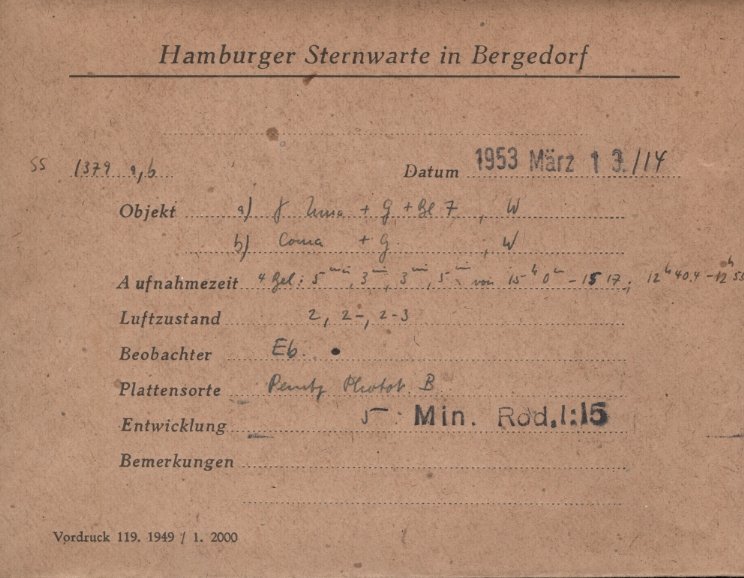 Hamburger Sternwarte in Bergedorf
SS 1379 a, b Datum 1953 März 13./14
Objekt a) + G + , W
b) Coma + G , W
Aufnahmezeit 4 Bel: 5 min, 3 min, 3 min, 5 min von 15 h 0 m – 15 17; 12 h 40.4 – 12 h
Luftzustand 2, 2-, 2-3
Beobachter Eb.
Plattensorte B
Entwicklung 5 Min. Rod. 1:15
Bemerkungen
Vordruck 119. 1949 / 1. 2000